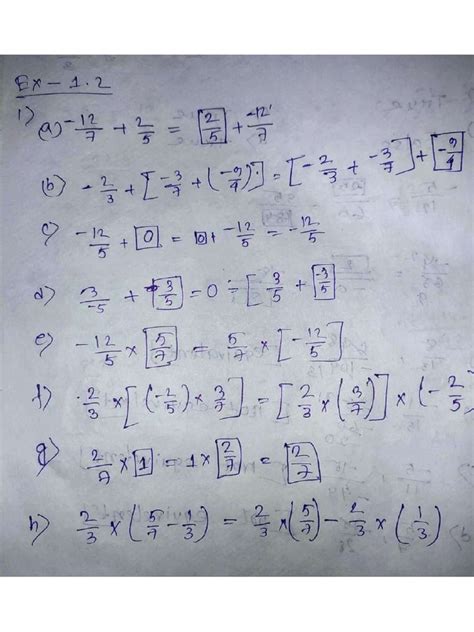 Ex - 1.2
1) (a) -12/7 + 2/5 = 2/5 + -12/7
(b) -2/3 + [-3/7 + (-9/4)] = [-2/3 + -3/7] + -9/4
c) -12/5 + 0 = 0 + -12/5 = -12/5
d) 3/-5 + 3/5 = 0 = [3/5 + -3/5
e) -12/5 × 5/7 = 5/7 × [-12/5]
f) 2/3 × [(-2/5) × 3/7] = [2/3 × (3/7)] × (-2/5
g) 2/7 × 1 = 1 × 2/7 = 2/7
h) 2/3 × (5/7 - 1/3) = 2/3 × (5/7) - 2/3 × (1/3)